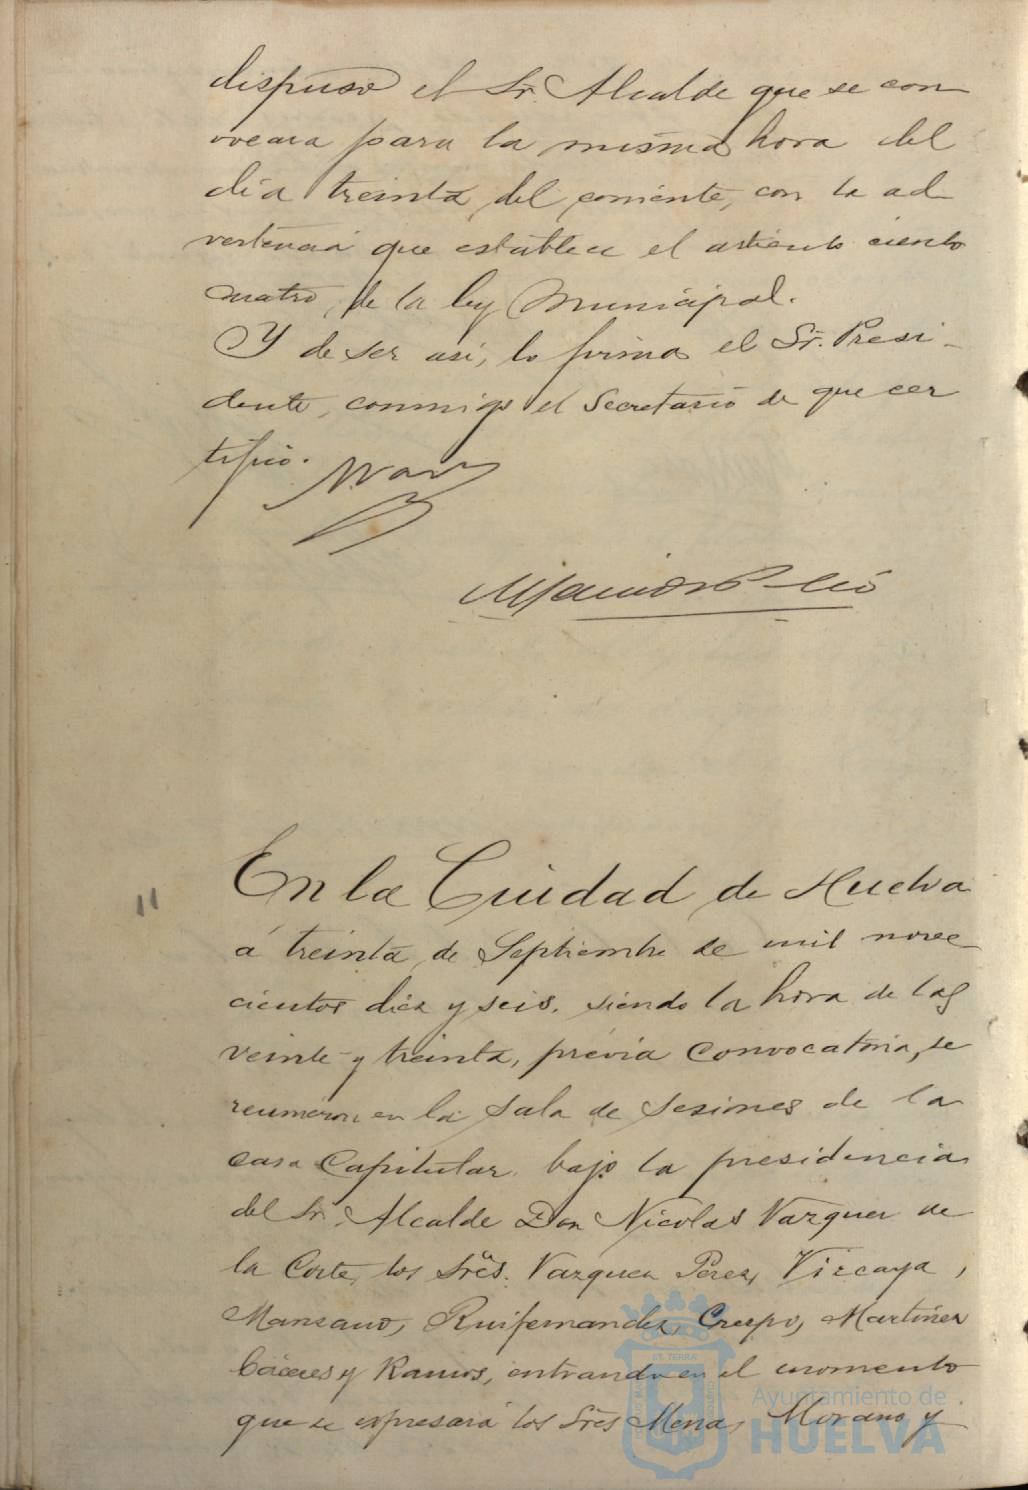 dispuso el Sr. Alcalde que se con
vocara para la misma hora del
día treinta del corriente, con la ad
vertencia que establece el artículo ciento
cuatro de la ley Municipal.
Y de ser así, lo firma el Sr. Presi-
dente, conmigo el Secretario de que cer
tifico.
11
En la Ciudad de Huelva
á treinta de Septiembre de mil nove
cientos diez y seis, siendo la hora de las
veinte y treinta, prévia convocatoria, se
reunieron en la Sala de Sesiones de la
casa Capitular, bajo la presidencia
del Sr. Alcalde Don Nicolas Vazquez de
la Corte, los Sres. Vazquez Perez, Vizcaya,
Manzano, Ruifernandez, Crespo, Martinez
Cáceres y Ramos, entrando en el momento
que se expresará los Sres Mena, Morano, y
Ayuntamiento de
HUELVA